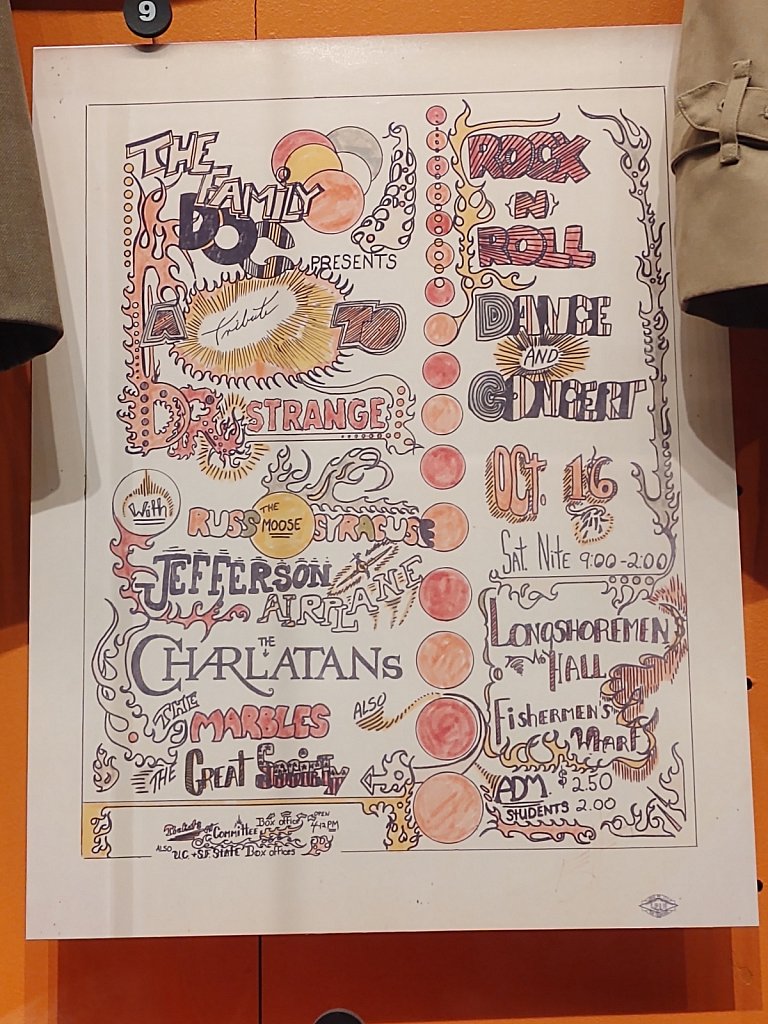 9
THE
FAMILY
DOG
PRESENTS
A Tribute TO
DR. STRANGE
With
RUSS THE MOOSE SYRACUSE
JEFFERSON
AIRPLANE
THE
CHARLATANS
THE
MARBLES
ALSO
THE GREAT SOCIETY
Committee Box office OPEN
4-12 PM
ALSO U.C. + S.F. STATE Box offices
ROCK
N
ROLL
DANCE
AND
CONCERT
OCT. 16
SAT. NITE 9:00-2:00
LONGSHOREMEN
HALL
FISHERMEN'S
WHARF
ADM. $2.50
STUDENTS 2.00